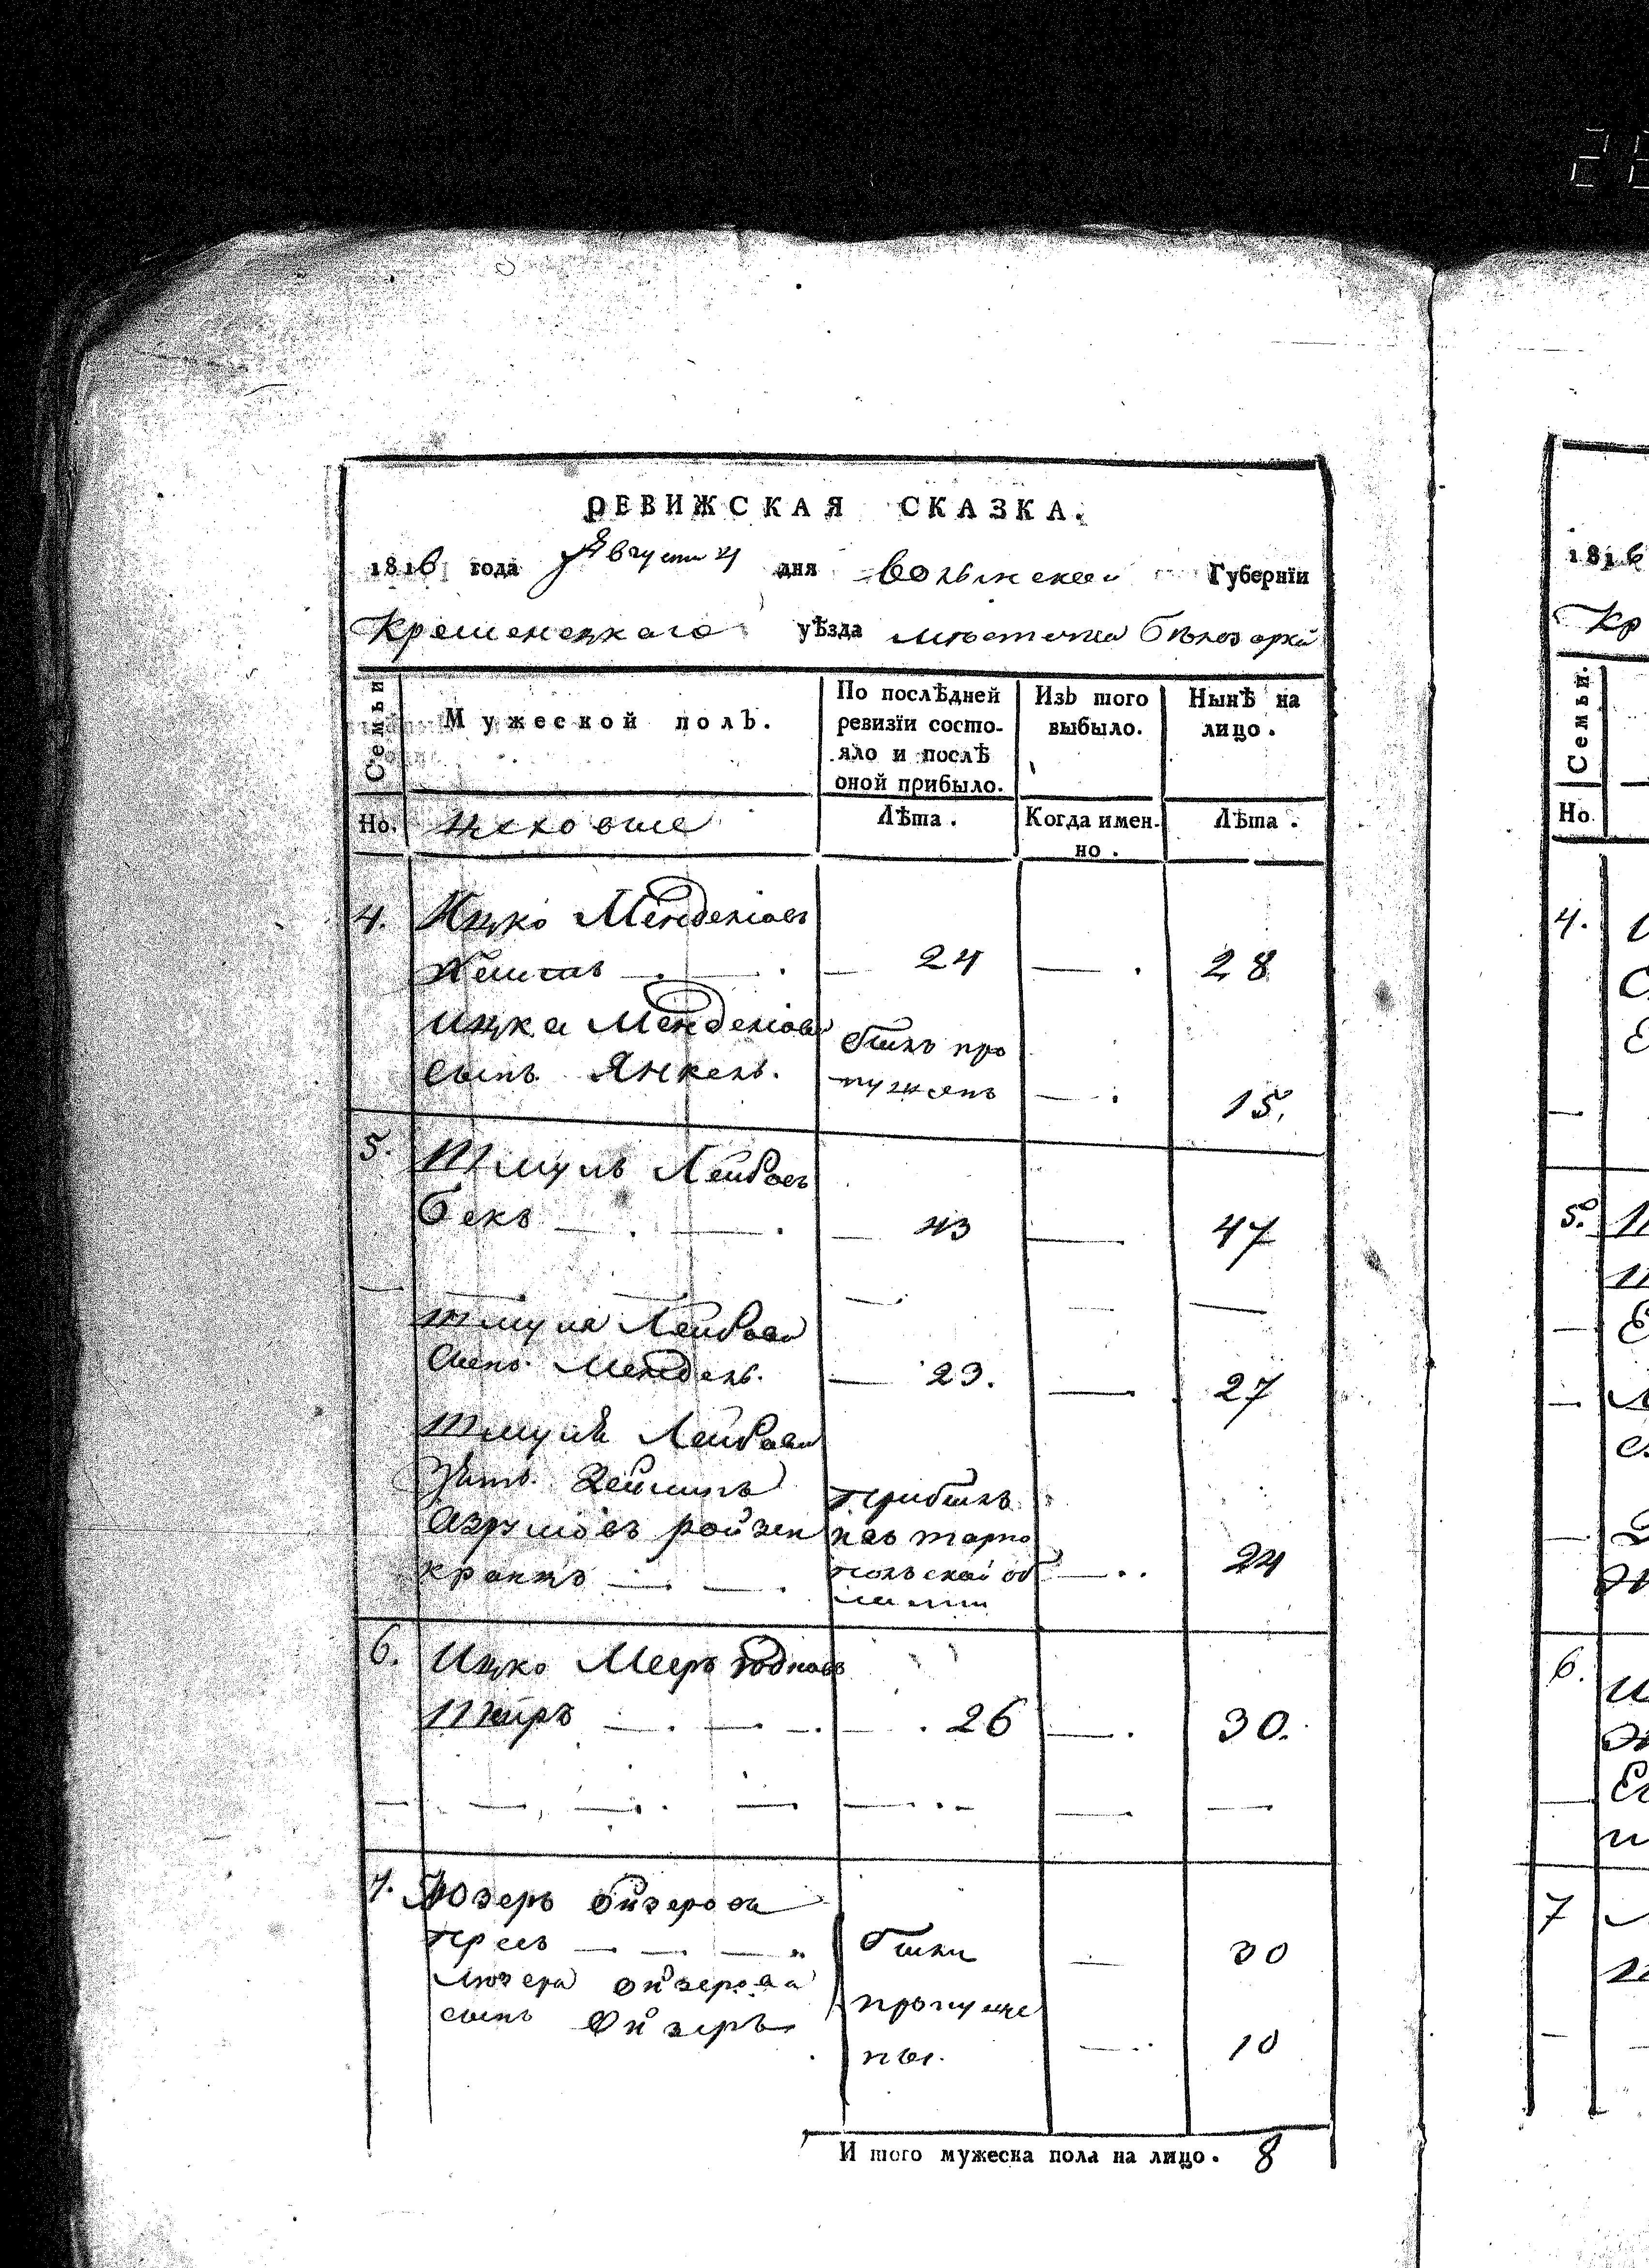 РЕВИЖСКАЯ СКАЗКА.
1816 года Августа 21 дня Волынской Губернїи
Кременецкаго уѣзда мѣстечка Бѣлозорки
Семьи
Мужеской полъ.
По послѣдней ревизїи состояло и послѣ оной прибыло.
Изъ того выбыло.
Нынѣ на лицо.
Но.
цеховые
Лѣта.
Когда именно.
Лѣта.
4. Ицко Менделіовъ
24 28
Ицка Менделіова
сынъ Янкель.
былъ про
пущенъ 15.
5. Шмуль Лейбовъ
Бекъ 43 47
Шмуля Лейбова
Сынъ Мендель. 23. 27
Шмуля Лейбова
Зять
кранцъ
прибылъ
изъ тарно
польской об
ласти
24
6. Ицко Мееръ
26 30.
7. Лозеръ Ойзерова
30
Лозера Ойзерова
сынъ Ойзеръ
были
пропуще
ны.
10
И того мужеска пола на лицо. 8
1816
Кр
Семьи.
Но.
4.
5.
6.
7